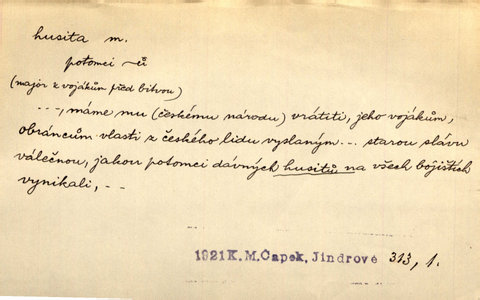 husita m.
potomci -ů
(major k vojákům před bitvou)
---, máme mu (českému národu) vrátiti, jeho vojákům,
obráncům vlasti z českého lidu vyslaným... starou slávu
válečnou, jakou potomci dávných husitů na všech bojištích
vynikali, --
1921 K. M. Čapek, Jindrové 313, 1.